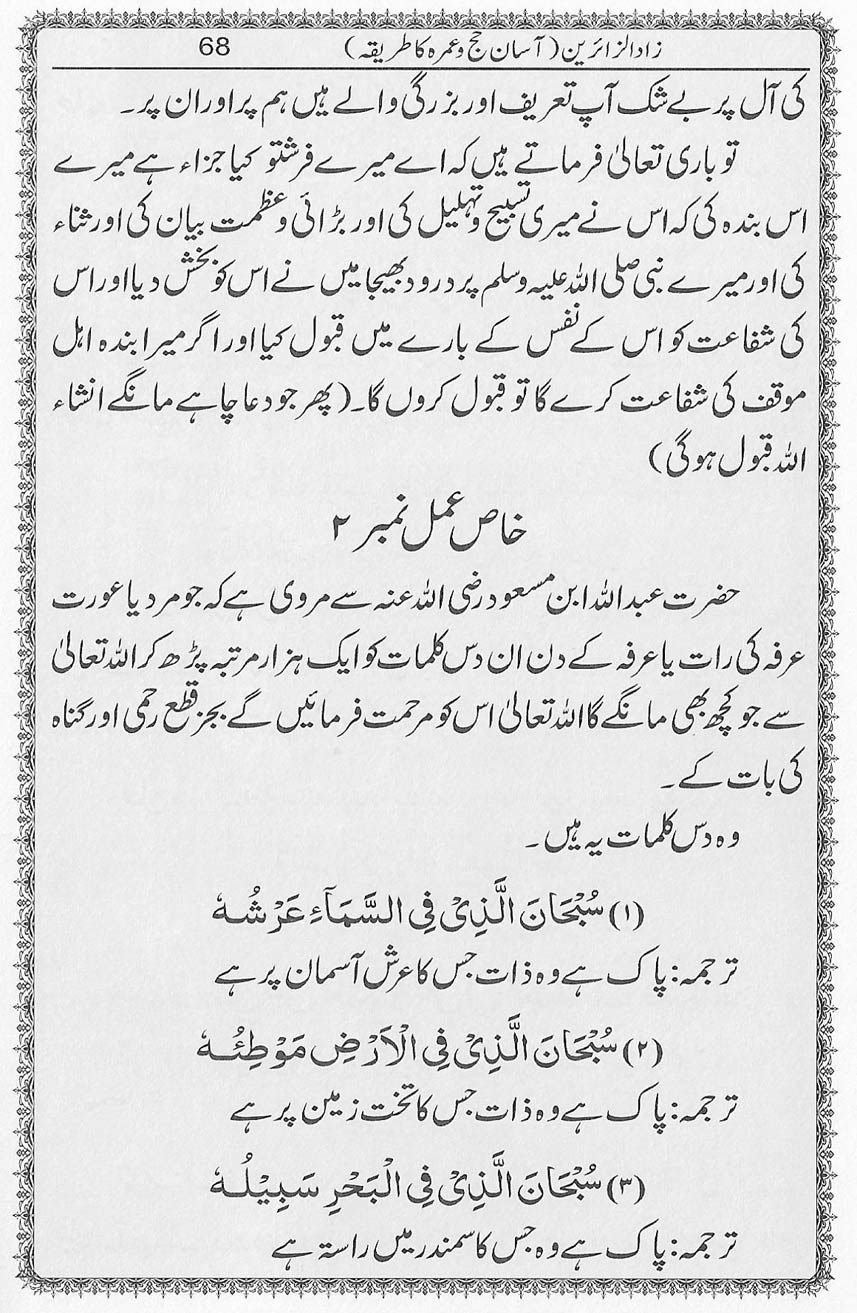 زاد الزائرین (آسان حج و عمرہ کا طریقہ) 68
کی آل پر بے شک آپ تعریف اور بزرگی والے ہیں ہم پر اور ان پر۔
تو باری تعالیٰ فرماتے ہیں کہ اے میرے فرشتو کیا جزاء ہے میرے
اس بندہ کی کہ اس نے میری تسبیح و تہلیل کی اور بڑائی و عظمت بیان کی اور ثناء
کی اور میرے نبی صلی اللہ علیہ وسلم پر درود بھیجا میں نے اس کو بخش دیا اور اس
کی شفاعت کو اس کے نفس کے بارے میں قبول کیا اور اگر میرا بندہ اہل
موقف کی شفاعت کرے گا تو قبول کروں گا۔ (پھر جو دعا چاہے مانگے انشاء
اللہ قبول ہوگی)
خاص عمل نمبر ۲
حضرت عبداللہ ابن مسعود رضی اللہ عنہ سے مروی ہے کہ جو مرد یا عورت
عرفہ کی رات یا عرفہ کے دن ان دس کلمات کو ایک ہزار مرتبہ پڑھ کر اللہ تعالیٰ
سے جو کچھ بھی مانگے گا اللہ تعالیٰ اس کو مرحمت فرمائیں گے بجز قطع رحمی اور گناہ
کی بات کے۔
وہ دس کلمات یہ ہیں۔
(۱) سُبْحَانَ الَّذِیْ فِی السَّمَآءِ عَرْشُهٗ
ترجمہ: پاک ہے وہ ذات جس کا عرش آسمان پر ہے
(۲) سُبْحَانَ الَّذِیْ فِی الْاَرْضِ مَوْطِئُهٗ
ترجمہ: پاک ہے وہ ذات جس کا تخت زمین پر ہے
(۳) سُبْحَانَ الَّذِیْ فِی الْبَحْرِ سَبِیْلُهٗ
ترجمہ: پاک ہے وہ جس کا سمندر میں راستہ ہے